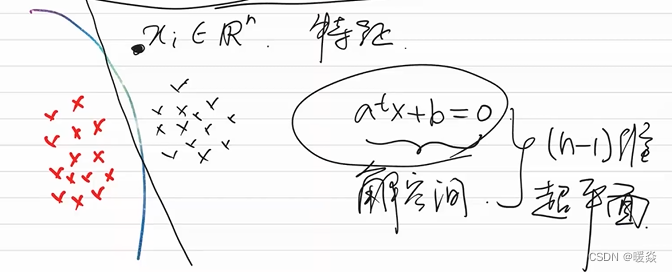 xᵢ ∈ ℝⁿ. 特征.
aᵗx+b=0
解空间.
(n-1)维
超平面.
CSDN @暖焱